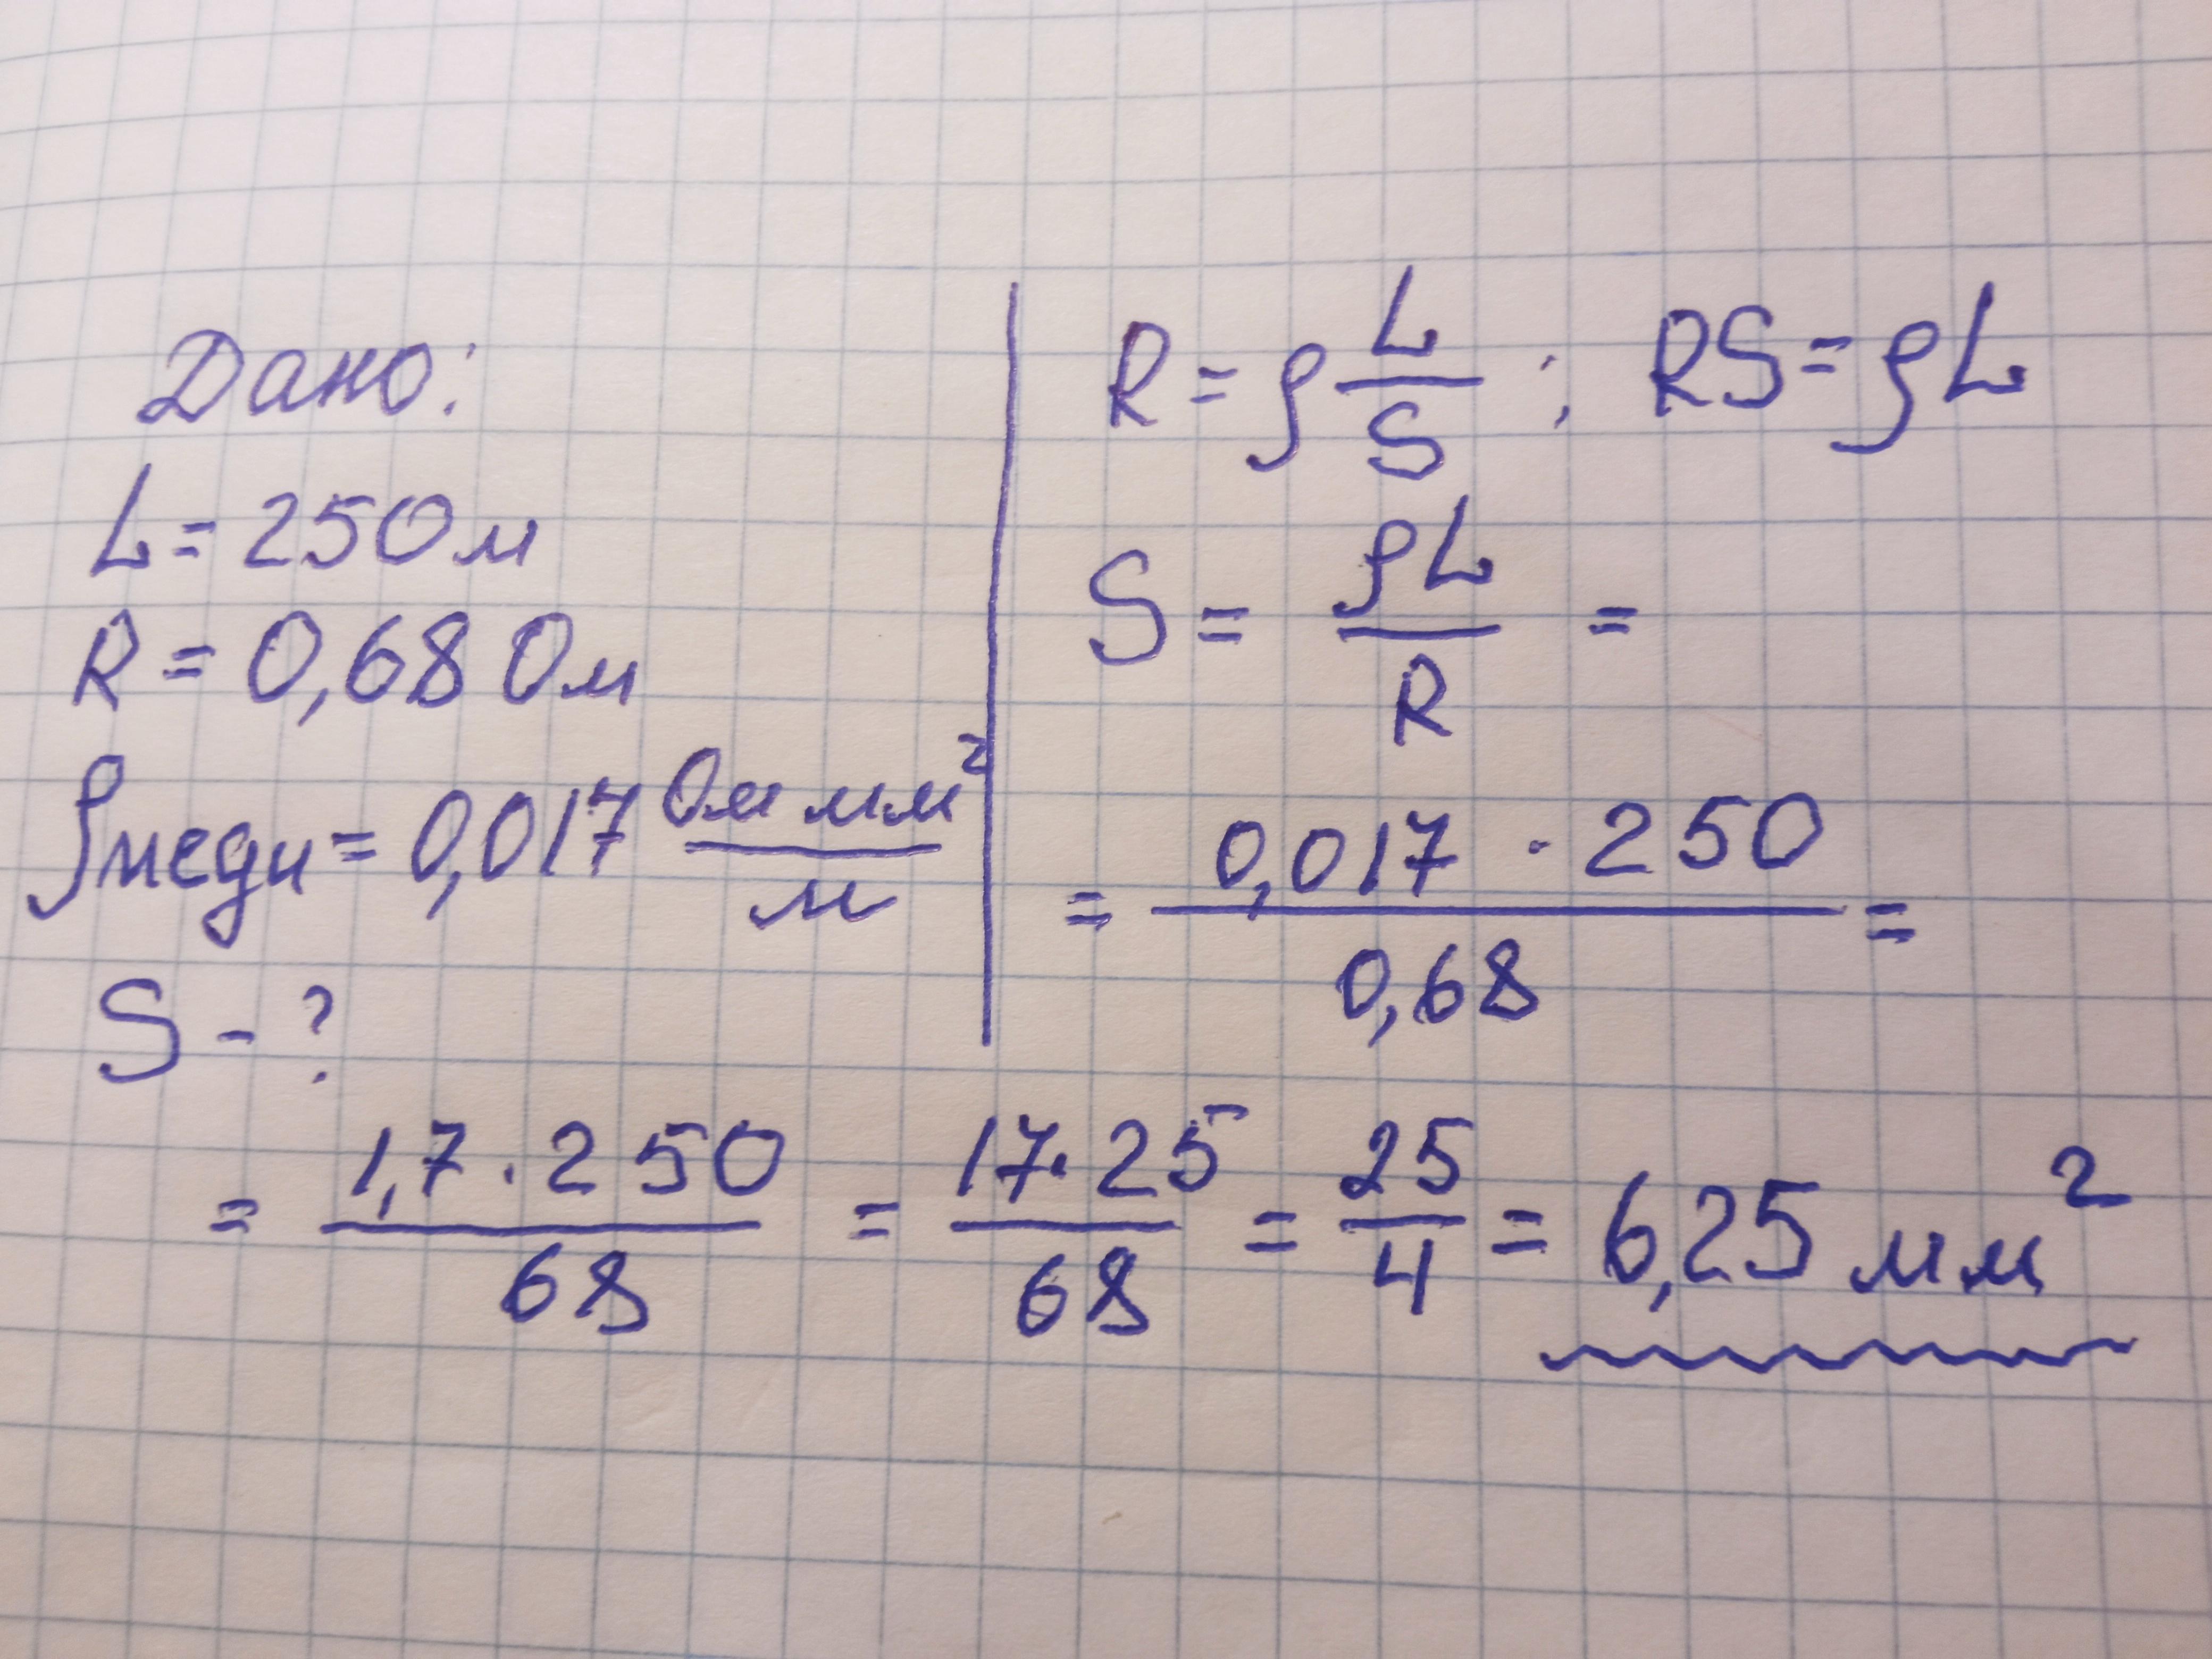 Дано:
L = 250 м
R = 0,68 Ом
ρмеди = 0,017 Ом мм²/м
S - ?
R = ρ L/S ; RS = ρL
S = ρL/R =
= 0,017 · 250/0,68 =
= 1,7 · 250/68 = 17 · 25/68 = 25/4 = 6,25 мм²